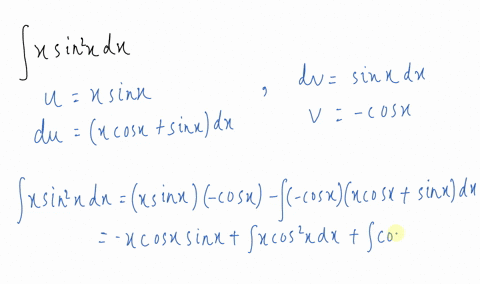 ∫x sin²x dx
u = x sinx , dv = sinx dx
du = (x cosx + sinx) dx v = -cosx
∫x sin²x dx = (x sinx)(-cosx) - ∫(-cosx)(x cosx + sinx) dx
= -x cosx sinx + ∫x cos²x dx + ∫co